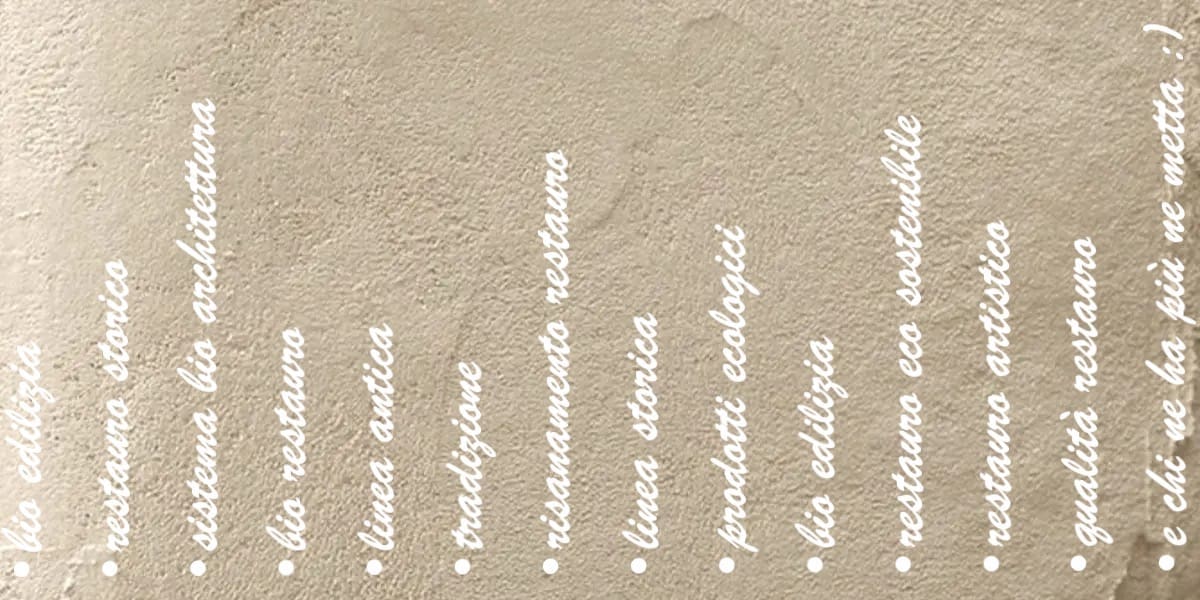 • bio edilizia
• restauro storico
• sistema bio architettura
• bio restauro
• linea antica
• tradizione
• risanamento restauro
• linea storica
• prodotti ecologici
• bio edilizia
• restauro eco sostenibile
• restauro artistico
• qualità restauro
• e chi ne ha più ne metta :)